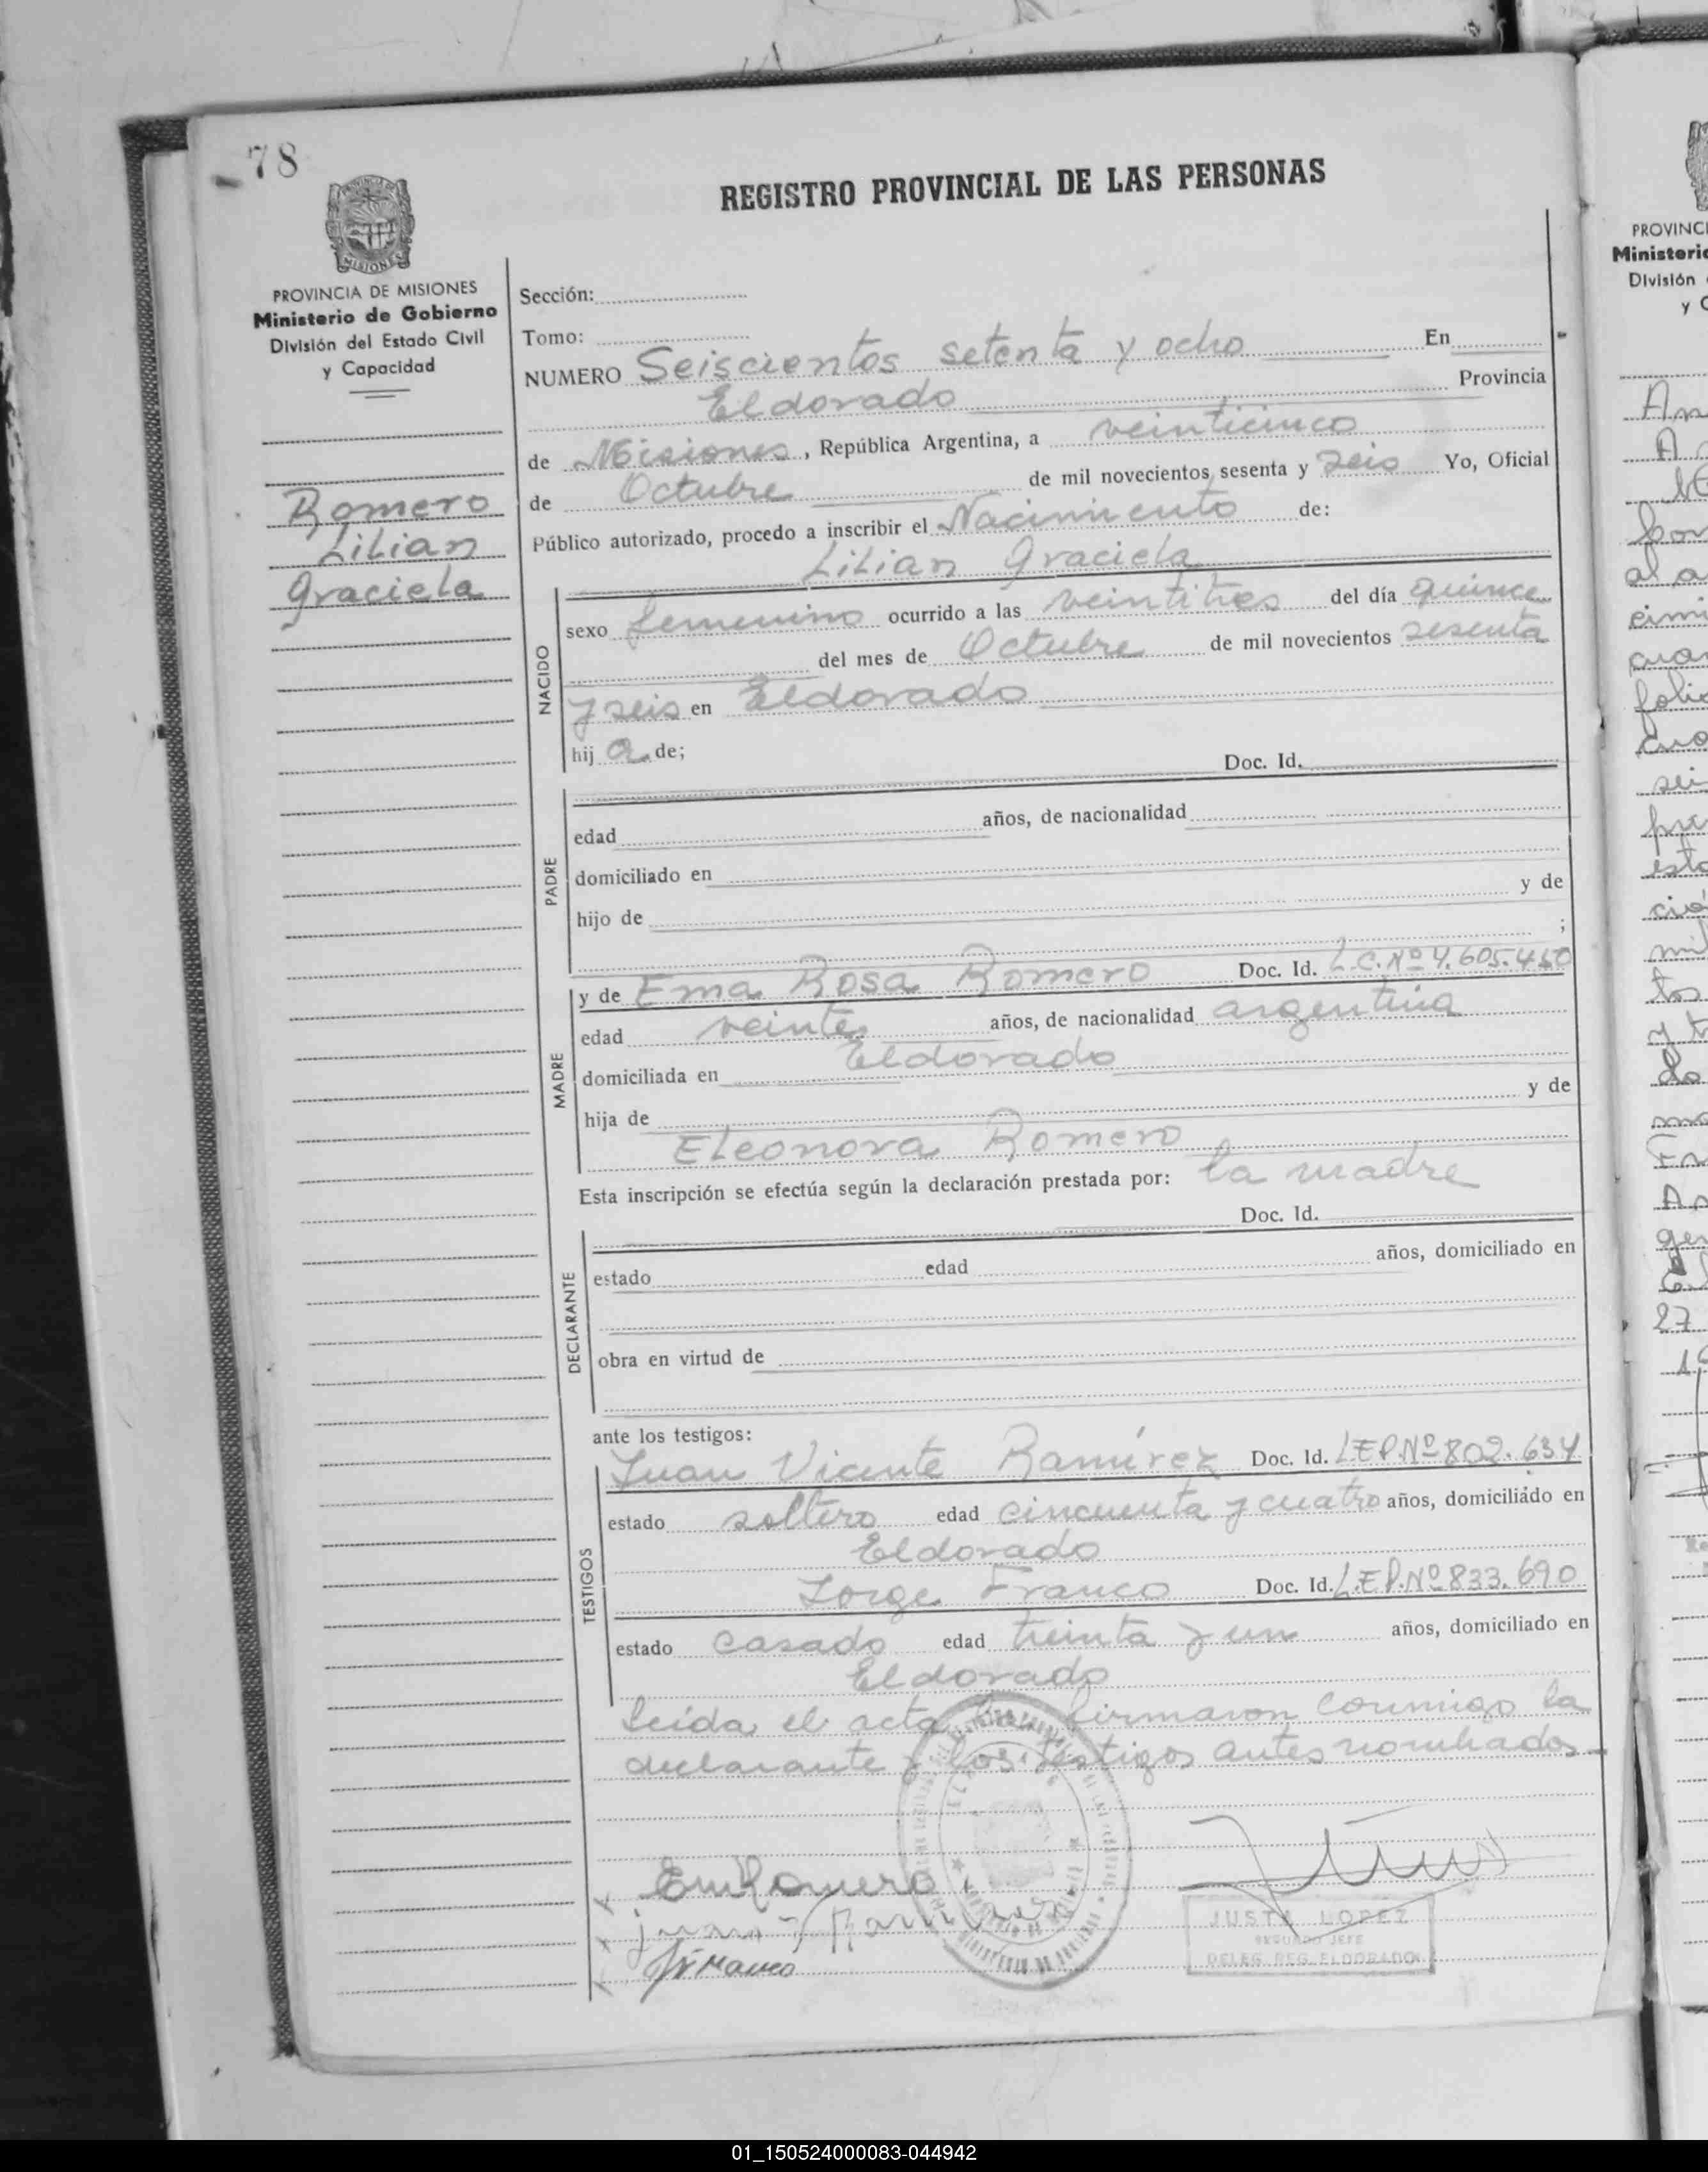 78
REGISTRO PROVINCIAL DE LAS PERSONAS
MISIONES
PROVINCIA DE MISIONES
Ministerio de Gobierno
División del Estado Civil
y Capacidad
Romero
Lilian
Graciela
Sección:
Tomo:
NUMERO Seiscientos setenta y ocho En
Eldorado Provincia
de Misiones, República Argentina, a veinticinco
de Octubre de mil novecientos sesenta y seis Yo, Oficial
Público autorizado, procedo a inscribir el Nacimiento de:
Lilian Graciela
NACIDO
sexo femenino ocurrido a las veintitres del día quince
del mes de Octubre de mil novecientos sesenta
y seis en Eldorado
hij a de;
Doc. Id.
PADRE
edad años, de nacionalidad
domiciliado en
hijo de y de
;
MADRE
y de Ema Rosa Romero Doc. Id. L.C. Nº 4.605.450
edad veinte años, de nacionalidad argentina
domiciliada en Eldorado
hija de y de
Eleonora Romero
Esta inscripción se efectúa según la declaración prestada por: la madre
Doc. Id.
DECLARANTE
estado edad años, domiciliado en
obra en virtud de
ante los testigos:
TESTIGOS
Juan Vicente Ramírez Doc. Id. L.E.P. Nº 802.634
estado soltero edad cincuenta y cuatro años, domiciliado en
Eldorado
Jorge Franco Doc. Id. L.E.P. Nº 833.690
estado casado edad treinta y un años, domiciliado en
Eldorado
Leída el acta la firmaron conmigo la
declarante y los testigos antes nombrados.
EmRomero
JUSTA LOPEZ
SEGUNDO JEFE
DELEG. REG. ELDORADO
PROVINCI
Ministerio
División
y C
27
01_150524000083-044942